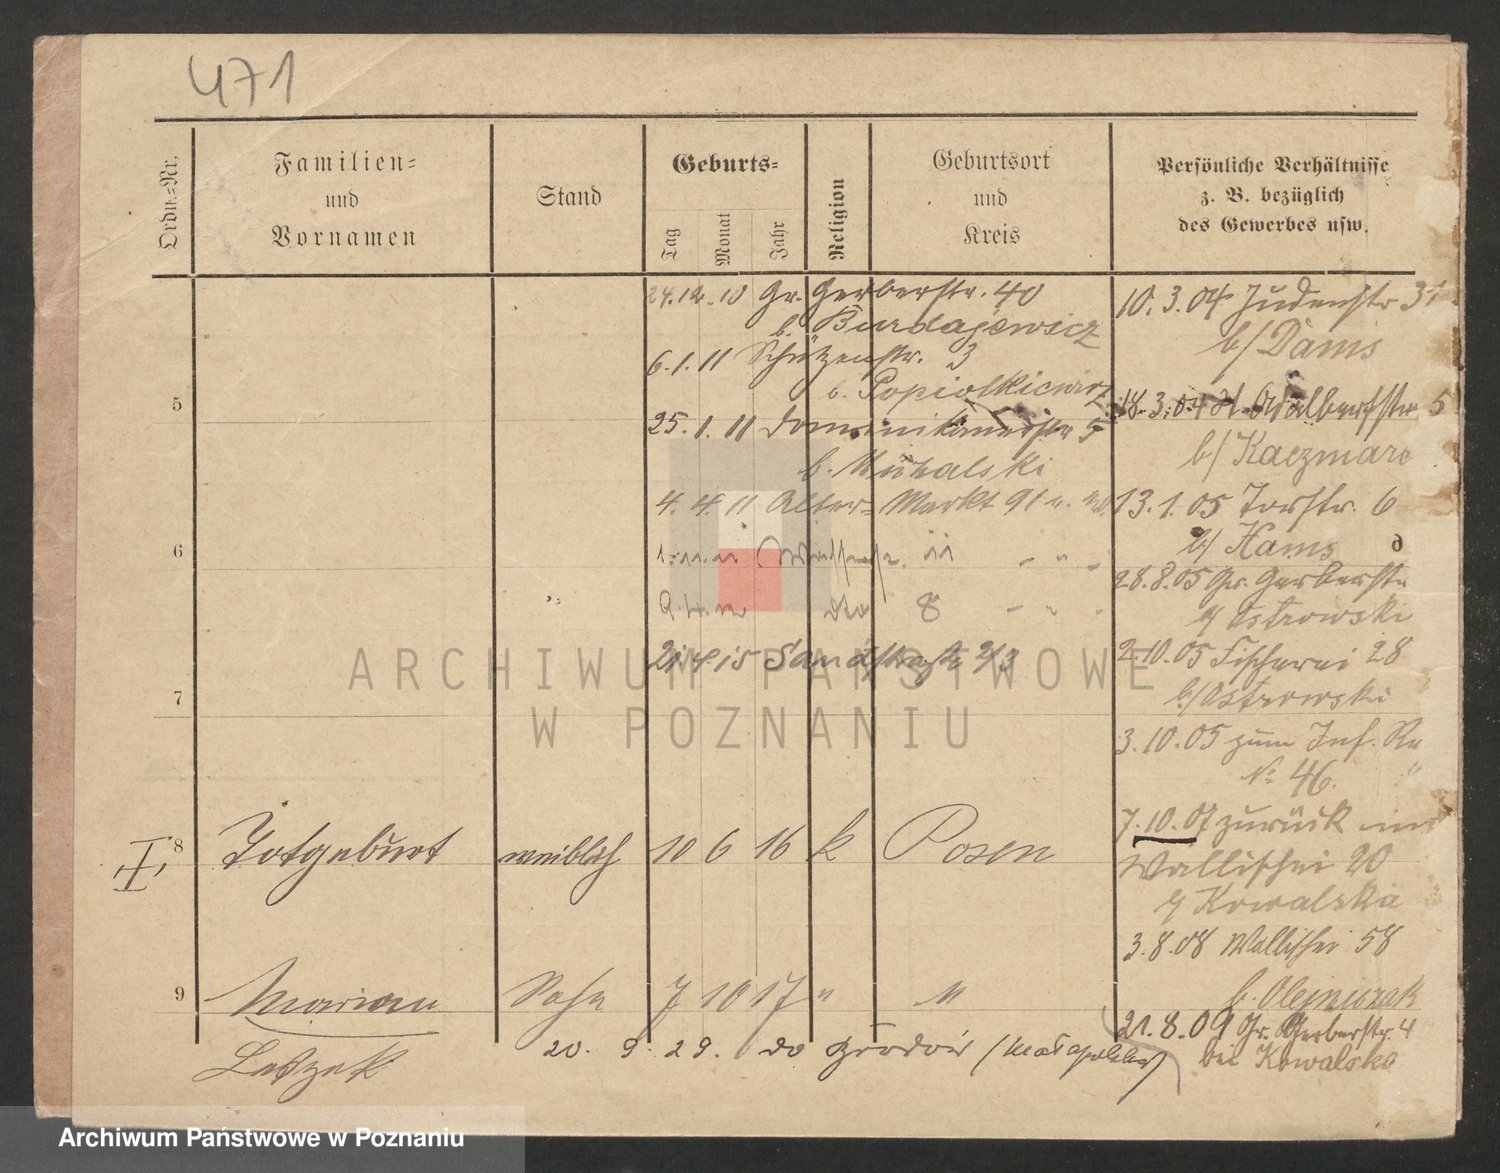 471
Ordn.-Nr.
Familien-
und
Vornamen
Stand
Geburts-
Tag
Monat
Jahr
Religion
Geburtsort
und
Kreis
Persönliche Verhältnisse
z. B. bezüglich
des Gewerbes usw.
24.12.10 Gr. Gerberstr. 40
b. Burdajewicz
6.1.11 Schützenstr. 3
b. Popiolkiewicz
5
25.1.11 Dominikanerstr 5
b. Michalski
4.4.11 Alter Markt 91
6
8
21.4.15 Sandstraße 2/3
7
8 Totgeburt weiblich 10 6 16 k Posen
9 Marian Sohn 7 10 17 " "
Leszek
20. 9. 29. do
10.3.04 Judenstr 31
b/ Dams
18.3.04 St. Adalbertstr 5
b/ Kaczmare
13.1.05 Torstr. 6
b/ Hams
28.8.05 Gr. Gerberstr
b/ Ostrowski
2.10.05 Fischerei 28
b/ Ostrowski
3.10.05 zum Inf. Re
No 46.
7.10.07 zurück
Wallischei 20
b/ Kowalska
3.8.08 Wallischei 58
b. Olejniczak
21.8.09 Gr. Gerberstr. 4
bei Kowalska
ARCHIWUM PAŃSTWOWE
W POZNANIU
Archiwum Państwowe w Poznaniu